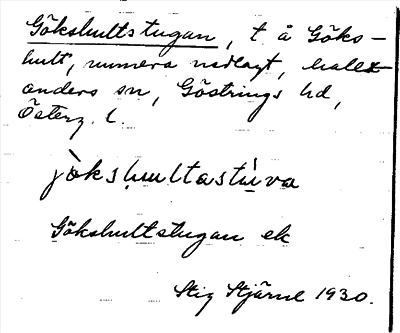 Gökshultstugan, t å Göks-
hult, numera nedlagt, kallt
anders sn, Göstrings hd,
Österg. l.
jökshultastuva
Gökshultstugan ek
Stig Stjärne 1930.